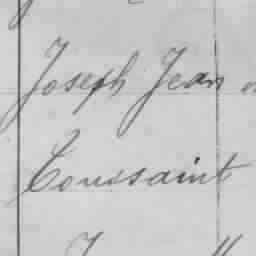 Joseph Jean
Toussaint